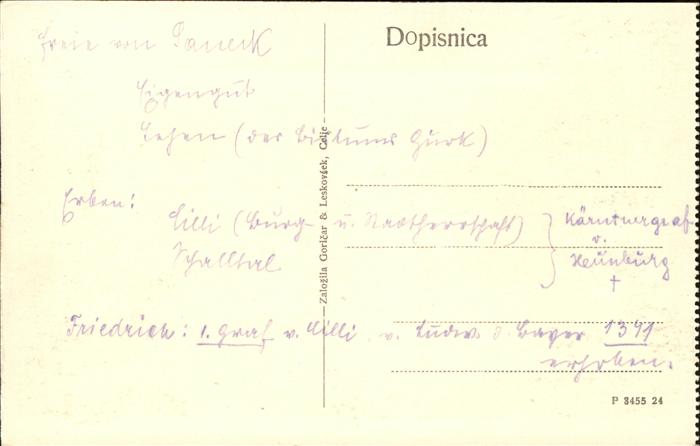 Dopisnica
Freie von Saneck
Eigengut
Lehen (des Bistums Gurk)
Erben:
Cilli (Burg- u. Stadtherrschaft) } Kärntnergraf
v.
Schalltal
Heunburg
†
Friedrich: 1. Graf v. Cilli v. Ludw d. Bayer 1341
erhoben.
Založila Goričar & Leskovšek, Celje
P 3455 24